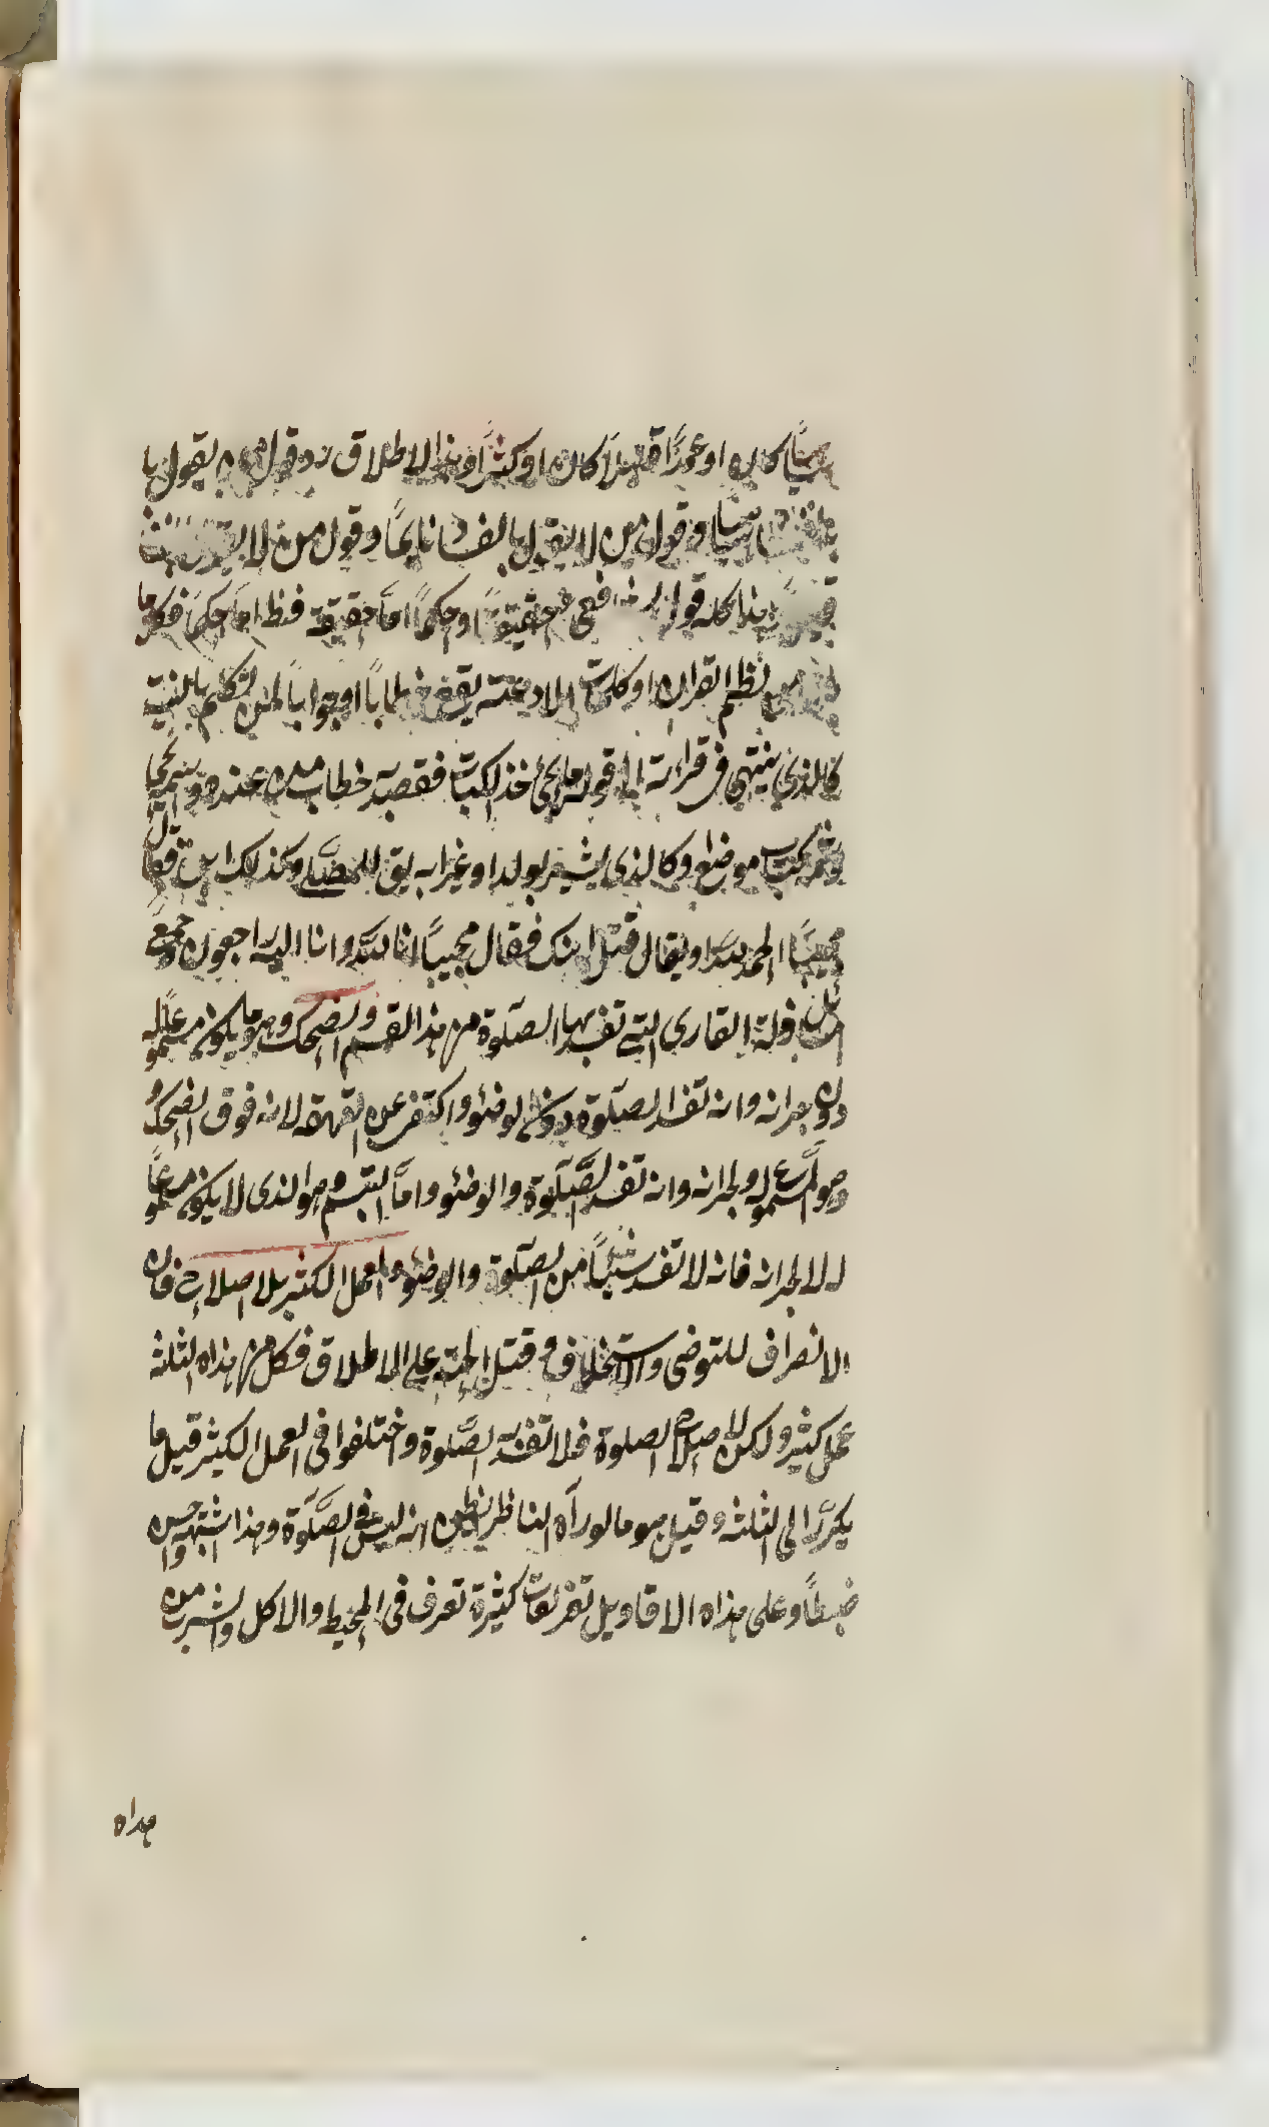 كان او عمدًا قليلاً كان او كثيرًا وهذا الاطلاق رد وقول من يقول با
وقول من لا يقول بالفساد نايمًا وقول من لا
هذا كله قول حقيقةً او حكمًا امّا حقيقة فظ امّا حكمًا فكل ما
نظم القران او كلمات الادعية يقع خطابًا او جوابًا لمن تكلم بالنية
كالذي ينتهي في قرائة الى قوله يا يحيى خذ الكتاب فقصد به خطاب من عنده وسمّى يحيى
وثم كتاب موضوع وكالذي يشير بولد او غيرا به يق للمصلّى وكذلك ابل فقال
مجيبًا الحمد لله او يقال قتل ابنك فقال مجيبًا انا لله وانا اليه راجعون جميع
زلة القارى التى تفسد بها الصلوة من هذا القسم والضحك وهو ما يكون مسموعًا له
دون جيرانه وانه تفسد الصلوة دون الوضئو واكتفى عن القهقهة لانه فوق الضحك
وهو المسموع له ولجيرانه وانه تفسد الصلوة والوضئو وامّا التبسم وهو الذى لا يكون مسموعًا
له لا لجيرانه فانه لا تفسد شيئًا من الصلوة والوضئو والعمل الكثير بلا اصلاح فان
الانصراف للتوضى والاستخلاف وقتل الحية على الاطلاق فكل من هذاه الثلثة
عمل كثير ولكن لاصلاح الصلوة فلا تفسد به الصلوة واختلفوا فى العمل الكثير قيل ما
يكرّر الى الثلثة وقيل هو ما لو رآه الناظر يظن انه ليس فى الصلوة وهذا اشبه واحسن
ضبطًا وعلى هذاه الاقاويل تفريعات كثيرة تعرف فى المحيط والاكل والشرب من
هداه